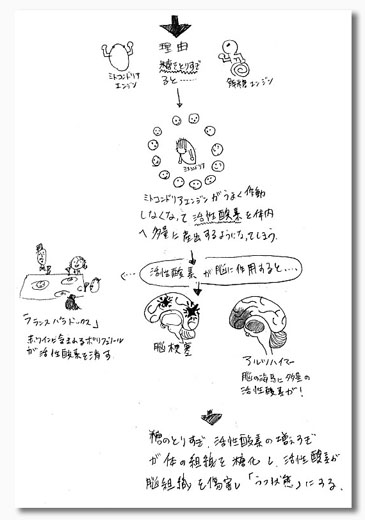 理由
糖をとりすぎ
ると……
ミトコンドリア
エンジン
解糖エンジン
ミトコンドリア
ミトコンドリアエンジンがうまく作動
しなくなって活性酸素を体内
へ多量に産出するようになってしまう.
活性酸素が脳に作用すると....
「フランスパラドックス」
赤ワインに含まれるポリフェノール
が活性酸素を消す.
脳梗塞
アルツハイマー
脳の海馬に多量の
活性酸素が!
糖のとりすぎ、活性酸素の増えすぎ
が体の組織を糖化し、活性酸素が
脳組織を傷害し「うつ状態」にする.